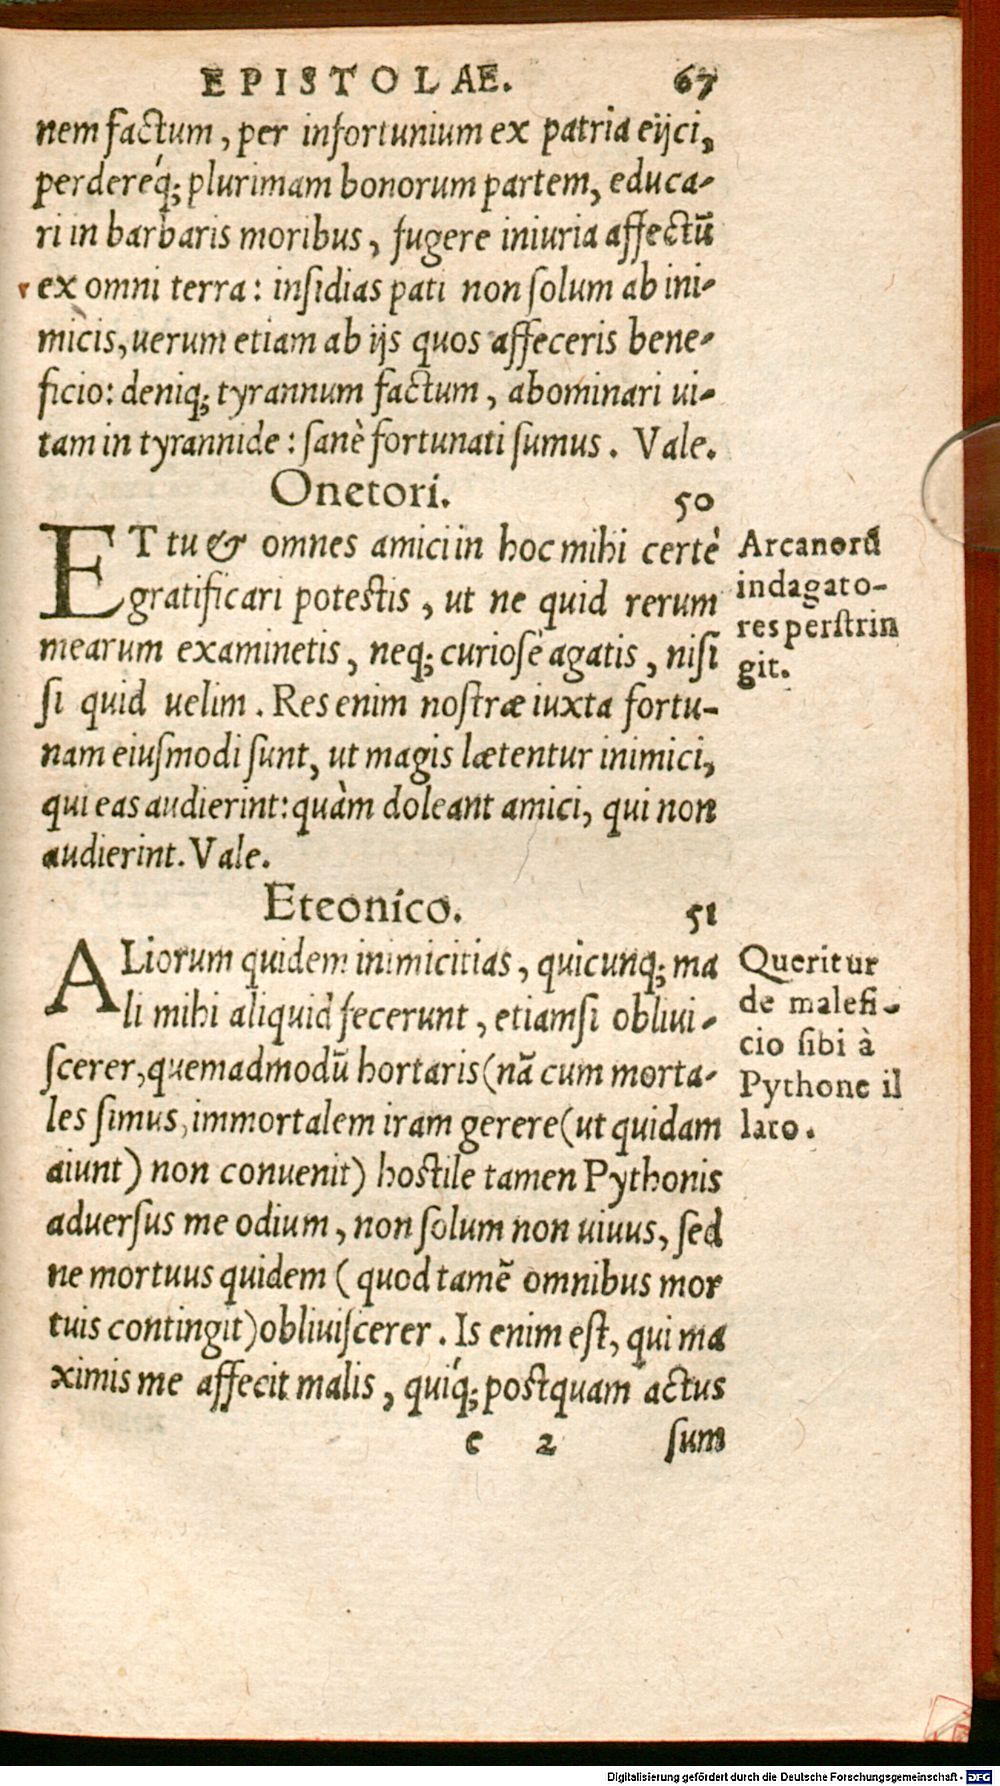 EPISTOLAE. 67
nem factum, per infortunium ex patria eijci,
perdereq́; plurimam bonorum partem, educa-
ri in barbaris moribus, fugere iniuria affectū
ex omni terra: insidias pati non solum ab ini-
micis, uerum etiam ab ijs quos affeceris bene-
ficio: deniq; tyrannum factum, abominari ui-
tam in tyrannide: sanè fortunati sumus. Vale.
Onetori. 50
ET tu & omnes amici in hoc mihi certè
gratificari potestis, ut ne quid rerum
mearum examinetis, neq; curiosè agatis, nisi
si quid uelim. Res enim nostræ iuxta fortu-
nam eiusmodi sunt, ut magis lætentur inimici,
qui eas audierint: quàm doleant amici, qui non
audierint. Vale.
Arcanorū
indagato-
res perstrin
git.
Eteonico. 51
ALiorum quidem inimicitias, quicunq; ma
li mihi aliquid fecerunt, etiamsi obliui-
scerer, quemadmodū hortaris (nā cum morta-
les simus, immortalem iram gerere (ut quidam
aiunt) non conuenit) hostile tamen Pythonis
aduersus me odium, non solum non uiuus, sed
ne mortuus quidem (quod tamē omnibus mor
tuis contingit) obliuiscerer. Is enim est, qui ma
ximis me affecit malis, quiq́; postquam actus
Queritur
de malefi-
cio sibi à
Pythone il
lato.
c 2 sum
Digitalisierung gefördert durch die Deutsche Forschungsgemeinschaft - DFG